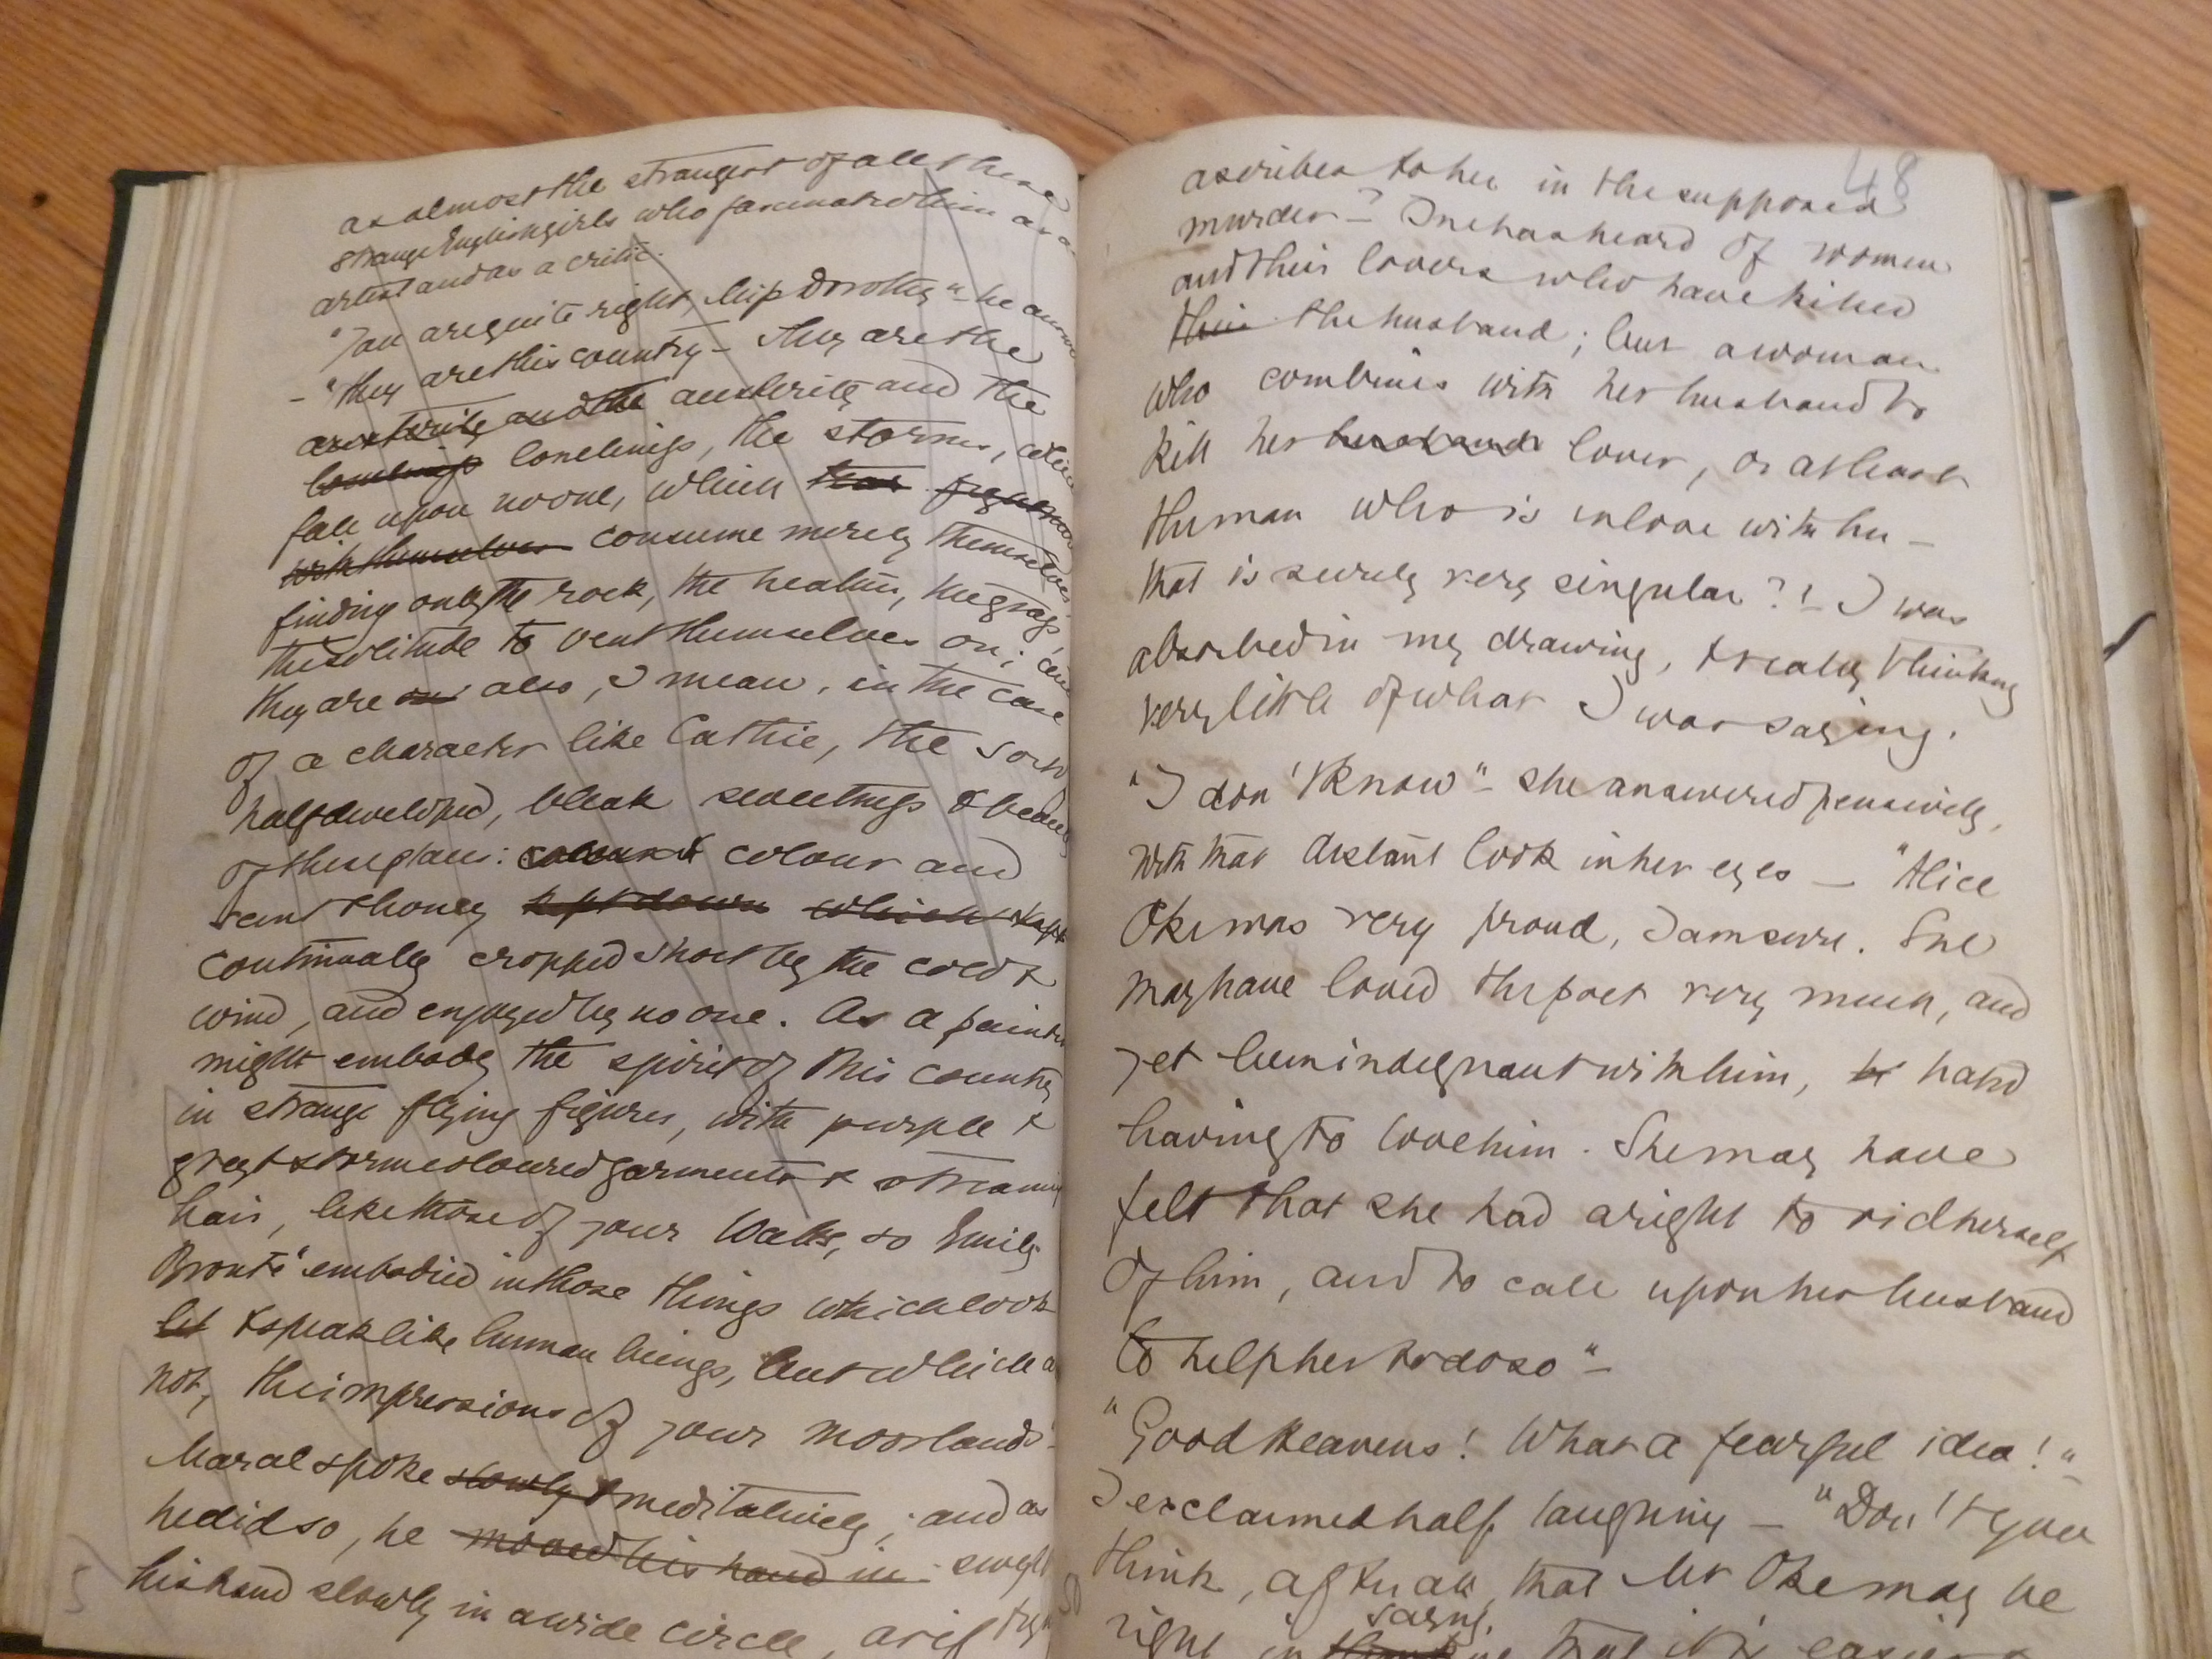 as almost the strangest of all these
strange English girls who fascinated him as an
artist and as a critic.
"You are quite right, Miss Dorothy" - he
- "they are this country - They are the
austerity and the austerity and the
loneliness loneliness, the storms, which
fall upon no one, which
with themselves consume merely themselves
finding only the rock, the heather, the grass
the solitude to vent themselves on; and
they are also, I mean, in the case
of a character like Cathie, the sort of
half developed, bleak sweetness & beauty
of these places: colour & colour and
scent & honey kept down which kept
continually cropped short by the cold &
wind, and enjoyed by no one. As a painter
might embody the spirit of this country
in strange flying figures, with purple &
grey & storm coloured garments & streaming
hair, like those of your Watts, so Emily
Brontë embodied in those things which look
& speak like human beings, but which are
not, the impressions of your moorlands"-
Marcel spoke slowly & meditatively; and as
he did so, he moved his hand in swept
his hand slowly in a wide circle, as if
48
ascribes to her in the supposed
murder - One has heard of women
and their lovers who have killed
their the husband; but a woman
who combines with her husband to
kill her husband lover, or at least
the man who is in love with her -
that is surely very singular?" - I was
absorbed in my drawing, & really thinking
very little of what I was saying.
"I don't know" - she answered pensively,
with that distant look in her eyes - "Alice
Oke was very proud, I am sure. She
may have loved the poet very much, and
yet been indignant with him, hated
having to love him. She may have
felt that she had a right to rid herself
of him, and to call upon her husband
to help her to do so"-
"Good Heavens! What a fearful idea!"-
I exclaimed half laughing - "Don't you
think, after all, that Mr Oke may be
saying,
right in that it is easier
50